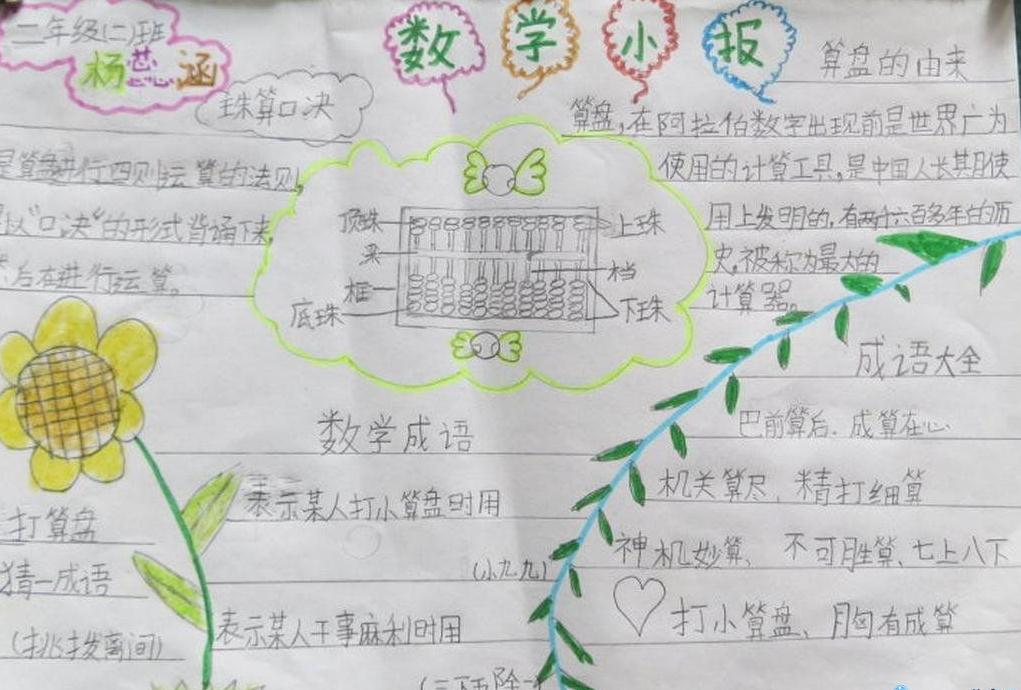 二年级(二)班
杨 涵
数学小报
珠算口决
是算盘进行四则运算的法则,
以"口决"的形式背诵下来,
后在进行运算。
算盘的由来
算盘,在阿拉伯数字出现前是世界广为
使用的计算工具,是中国人长期使
用上发明的,有两千六百多年的历
史,被称为最大的
计算器。
顶珠
梁
框
底珠
上珠
档
下珠
成语大全
巴前算后、成算在心
机关算尽、精打细算
神机妙算、不可胜算、七上八下
打小算盘、胸有成算
数学成语
表示某人打小算盘时用
(小九九)
表示某人干事麻利时用
打算盘
猜一成语
(挑拨离间)